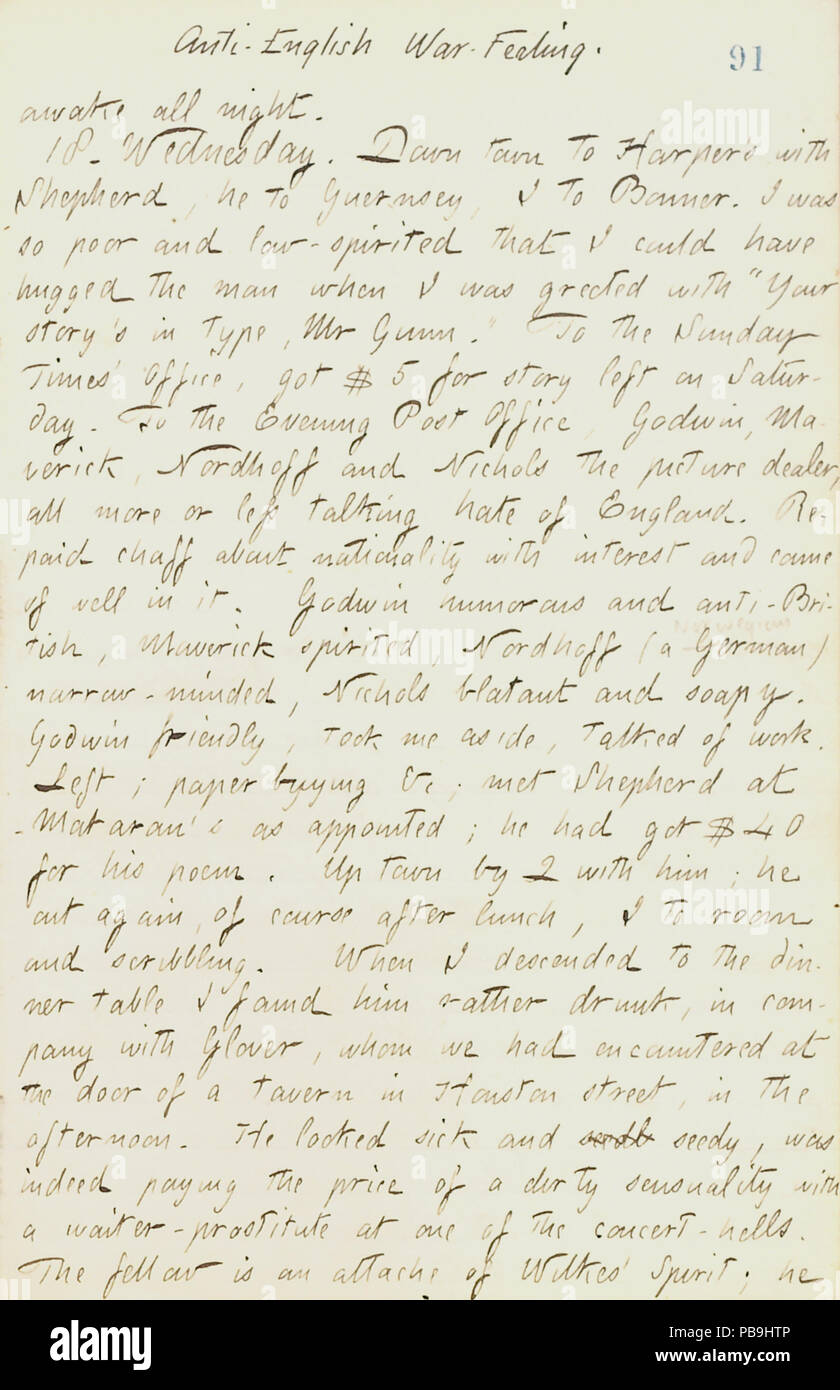 Anti-English War-Feeling.
91
awake all night.
18. Wednesday. Down town to Harper's with
Shepherd, he to Guernsey, I to Bonner. I was
so poor and low-spirited that I could have
hugged the man when I was greeted with "Your
story's in type, Mr Gunn." To the Sunday
Times' Office, got $5 for story left on Satur-
day. To the Evening Post Office, Godwin, Ma-
verick, Nordhoff and Nichols the picture dealer,
all more or less talking hate of England. Re-
paid chaff about nationality with interest and came
of well in it. Godwin humorous and anti-Bri-
Norwegian
tish, Maverick spirited, Nordhoff (a German)
narrow-minded, Nichols blatant and soapy.
Godwin friendly, took me aside, talked of work.
Left; paper buying &c; met Shepherd at
Mataran's as appointed; he had got $40
for his poem. Up town by 2 with him; he
out again, of course after lunch, I to room
and scribbling. When I descended to the din-
ner table I found him rather drunk, in com-
pany with Glover, whom we had encountered at
the door of a tavern in Houston street, in the
afternoon. He looked sick and seedy, was
indeed paying the price of a dirty sensuality with
a waiter-prostitute at one of the concert-hells.
The fellow is an attache of Wilkes' Spirit; he
alamy
alamy
Image ID: PB9HTP
www.alamy.com